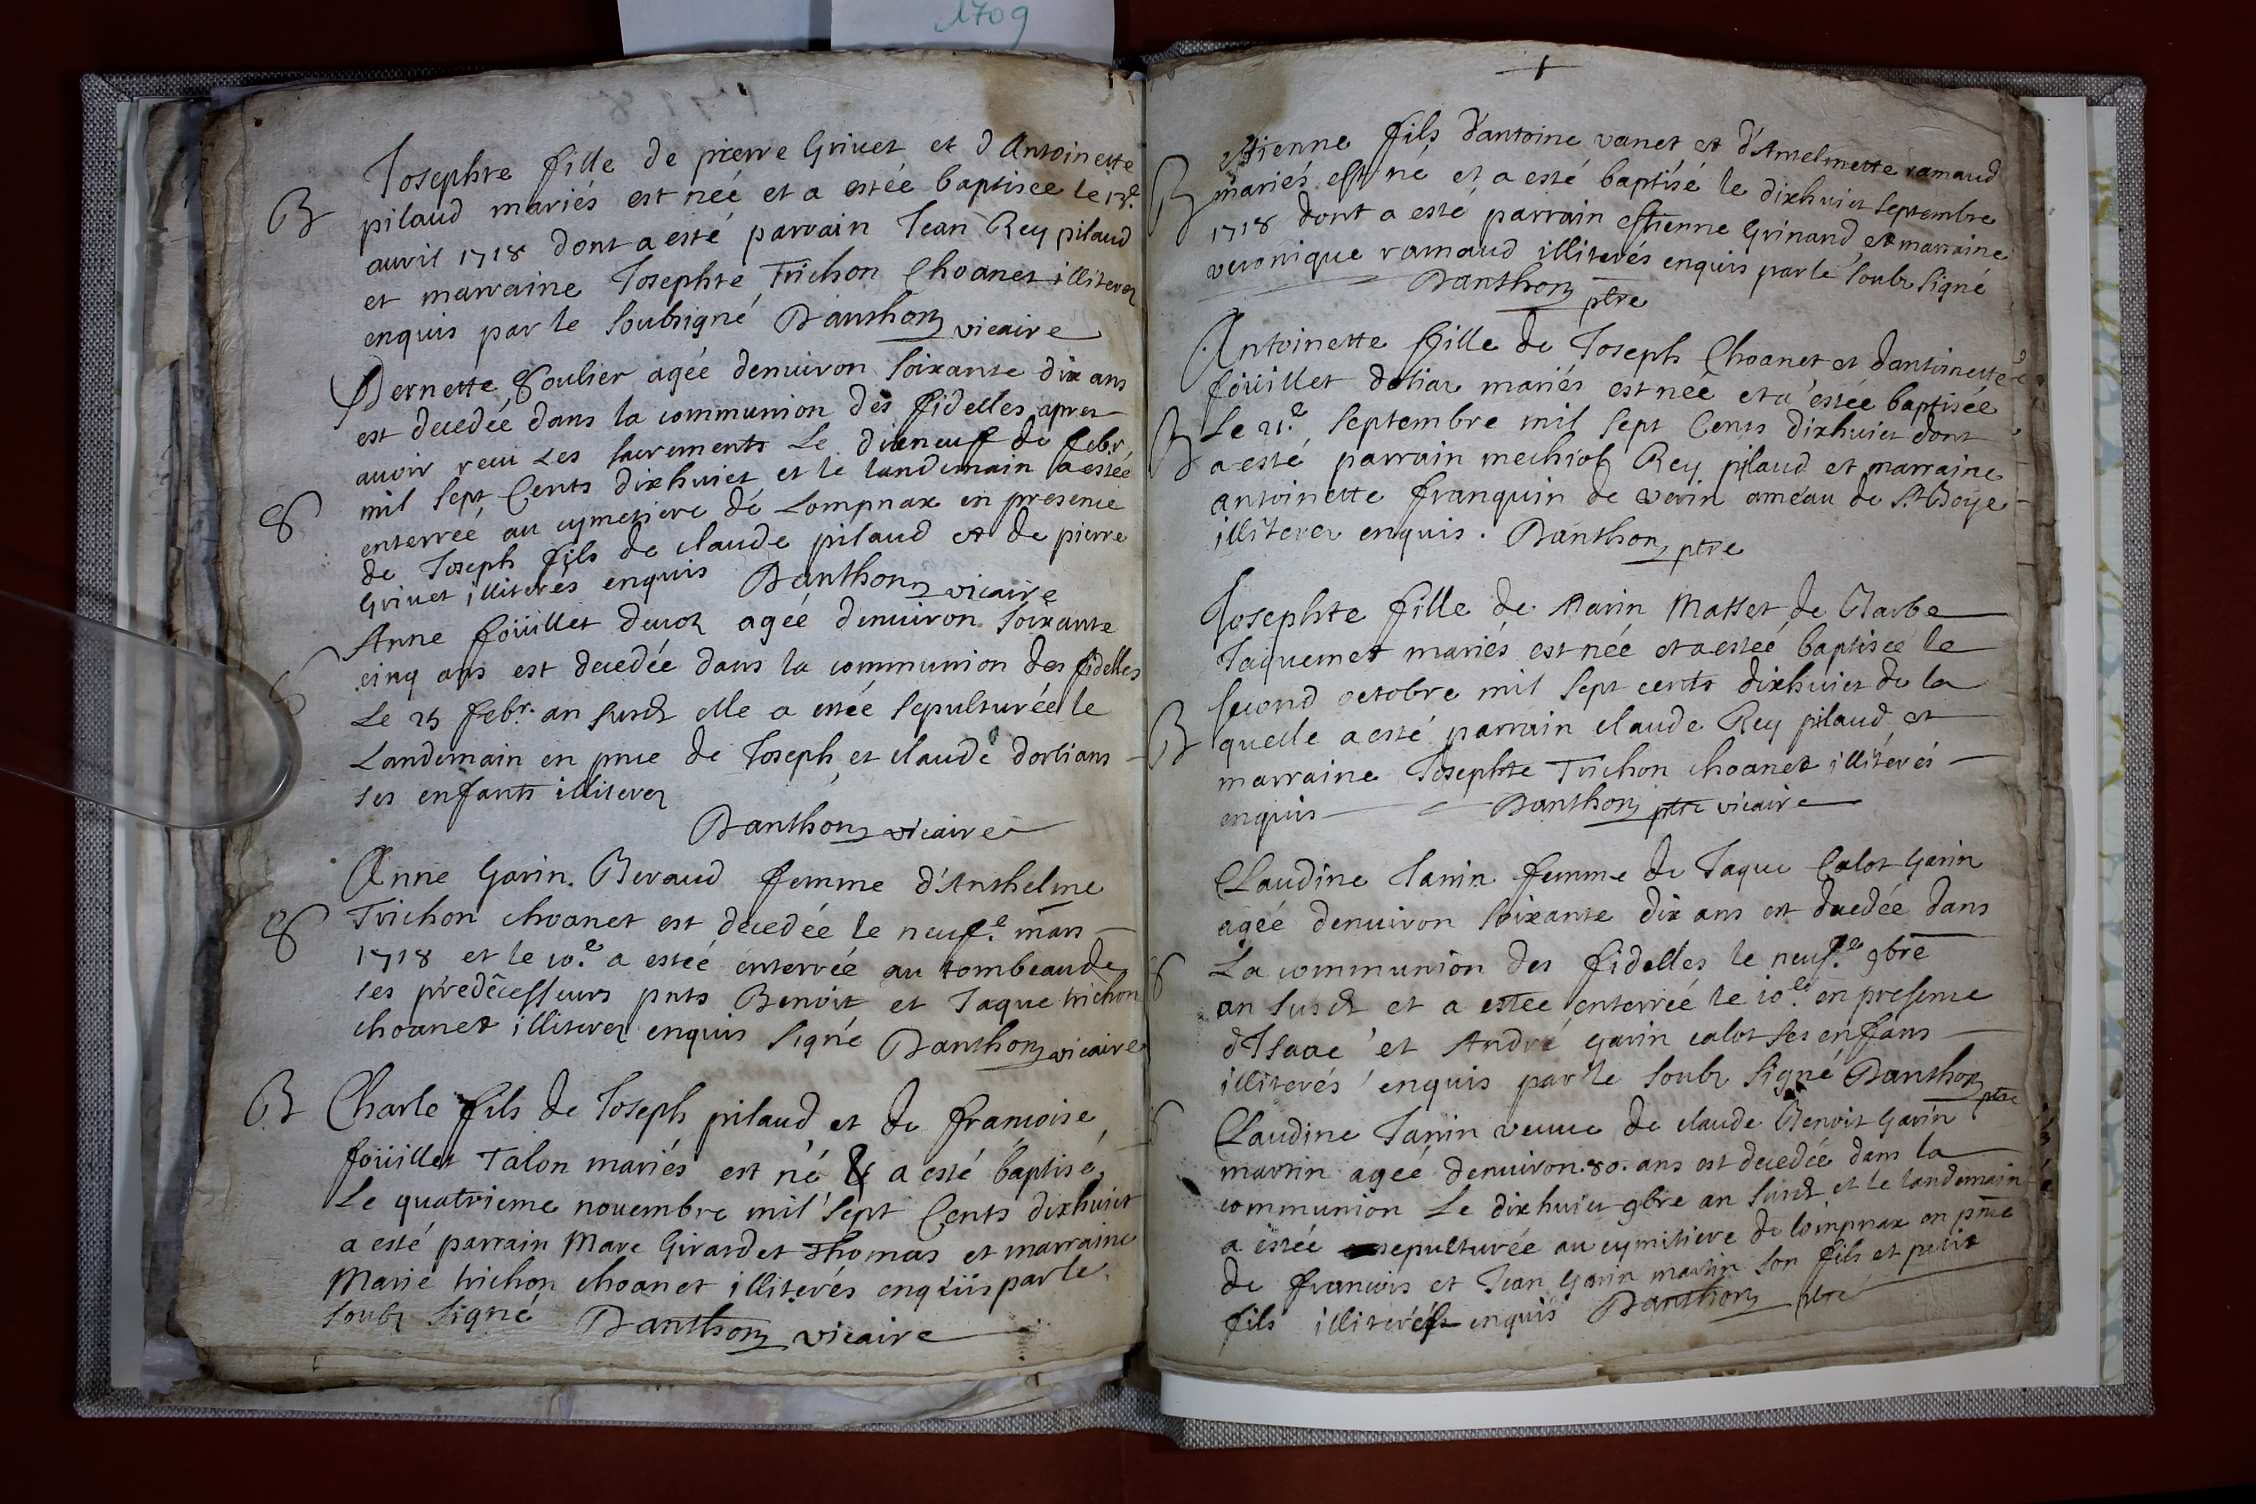 1709
Josephte fille de pierre Grivet et d'Antoinette
B pilaud mariés est née et a estée baptisée le 13.e
auvril 1718 dont a esté parrain Jean Rey pilaud
et marraine Josephte Trichon Choanet illiterez
enquis par le soubsigné Danthon vicaire
Pernette Soulier agée denuiron soixante dix ans
est decedée dans la communion des fidelles apres
auoir receu Les sacrements Le dixneuf de febr.
mil sept Cents dixhuict et le landemain a estée
S enterreé au cymetiere de Lompnax en presence
de Joseph fils de claude pilaud et de pierre
Grivet illiterés enquis Danthon vicaire
Anne foüillet deuoz agée denuiron soixante
cinq ans est decedée dans la communion des fidelles
S Le 25 febr. an susdt elle a estée sepulturée le
Landemain en pnce de Joseph et claude dorlians
ses enfants illiterez
Danthon vicaire
Anne Garin Beraud femme d'Anthelme
S Trichon choanet est decedée le neuf.e mars
1718 et le 10.e a estée enterrée au tombeau de
ses prédecesseurs pnts Benoit et Jaque trichon
choanet illiterez enquis signé Danthon vicaire
B Charle fils de Joseph pilaud et de francoise
foüillet Talon mariés est né & a esté baptisé
Le quatrieme novembre mil sept Cents dixhuict
a esté parrain Marc Girardet Thomas et marraine
Marie trichon choanet illiterés enquis par le
soubz signé Danthon vicaire
estienne fils d'antoine vanet et d'Antelmette ramaud
B mariés est né et a esté baptisé le dixhuict septembre
1718 dont a esté parrain estienne Grinand et marraine
veronique ramaud illiterés enquis par le soubz signé
Danthon ptre
Antoinette fille de Joseph Choanet et dantoinette
foüillet doliar mariés est née et a estée baptisée
B Le 21.e septembre mil sept Cents dixhuict dont
a esté parrain mechiol Rey pilaud et marraine
antoinette franquin de verin améau de St Boÿe
illiterez enquis. Danthon ptre
Josephte fille de Marin Masset de Barbe
Jaquemet mariés est née et a estée baptisée le
second octobre mil sept cents dixhuict de la
B quelle a esté parrain claude Rey pilaud et
marraine Josephte Trichon choanet illiterés
enquis Danthon ptre vicaire
Claudine Janin femme de Jaque Calot Garin
agée denuiron soixante dix ans est decedée dans
S La communion des fidelles le neuf.e 9bre
an susdt et a estée enterrée le 10.e en presence
d'Isaac et André Garin calot ses enffans
illiterés enquis par le soubz signé Danthon ptre
S Claudine Janin veuue de claude Benoit Garin
martin agée denuiron 80. ans est decedée dans la
communion Le dixhuict 9bre an susdt et le landemain
a estée sepulturée au cymitiere de lompnax en pnce
de francois et Jean Garin martin son fils et petit
fils illiterés enquis Danthon ptre